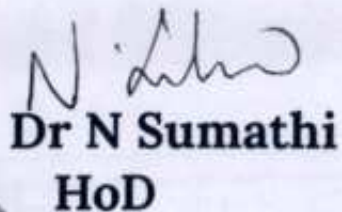 Dr N Sumathi
HoD